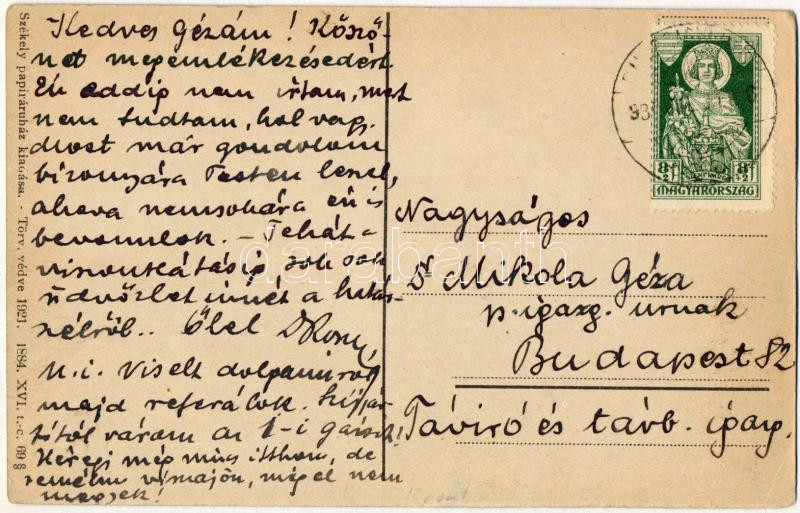 Kedves Gézám! Köszö-
net megemlékezésedért
Én eddig nem írtam, mert
nem tudtam, hol vagy.
Most már gondolom
bizonyára Pesten leszel,
ahova nemsokára én is
bevonulok. – Tehát a
viszontlátásig sok sok
üdvözlet innét a határ-
szélről.. Ölel
U. i. Viselt dolgaimról
majd referálok.
várom az 1-i
még nincs itthon, de
remélem visszajön, még el nem
megyek!
Székely papiráruház kiadása. - Törv. védve 1921. 1884. XVI. t.-c. 69 §
8f 8f
+2 +2
MAGYARORSZÁG
Nagyságos
Dr Mikola Géza
p. igazg. urnak
Budapest 82
Táviró és távb. igazg.
darabanth